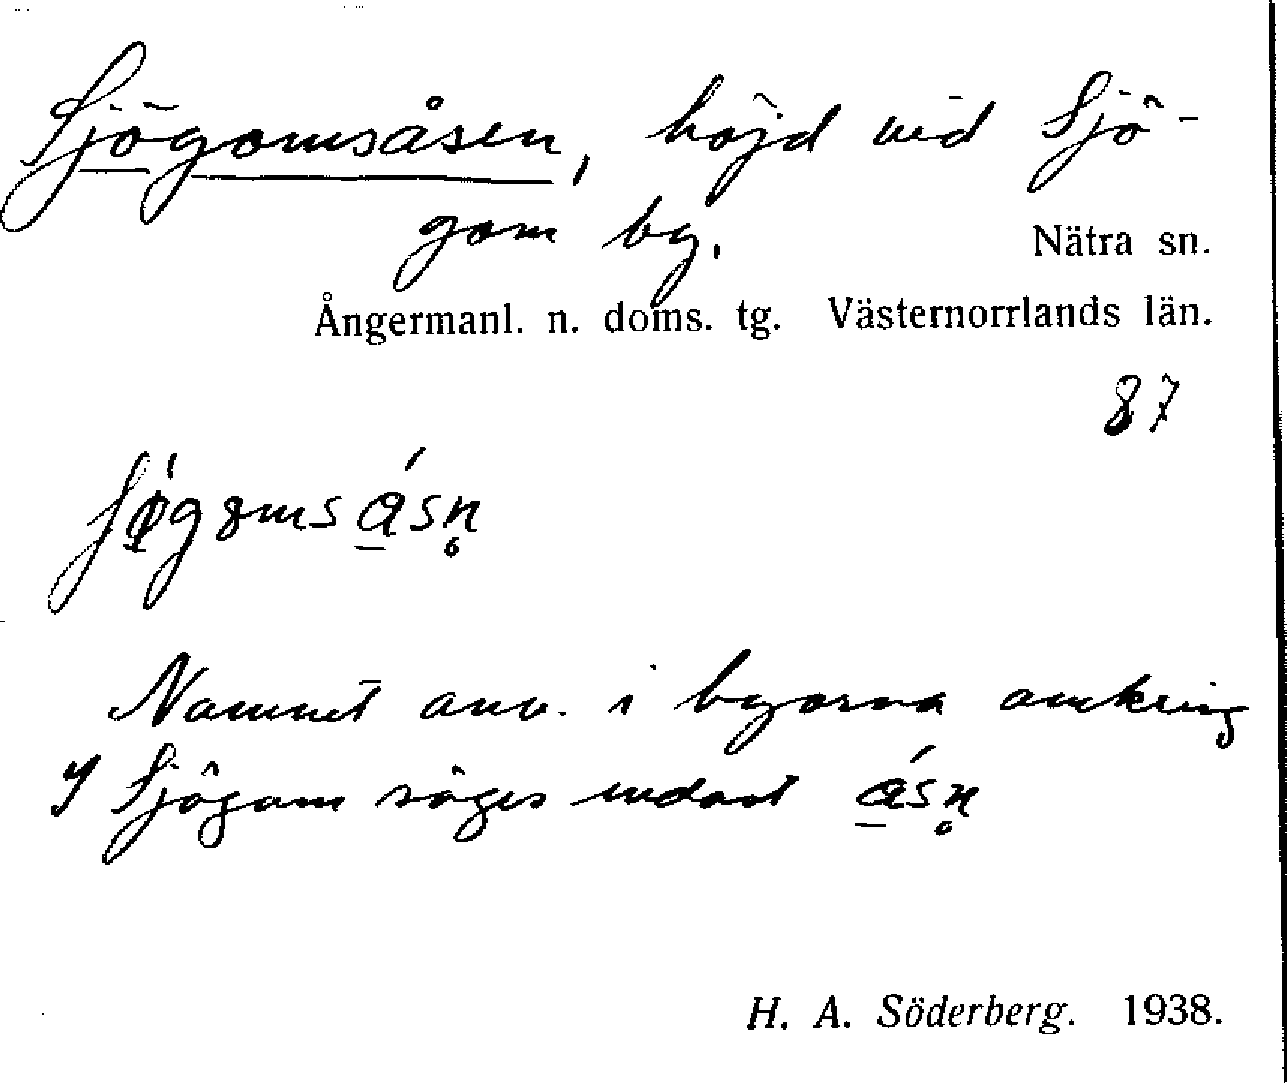 Sjögomsåsen, höjd vid Sjö-
gom by.
Nätra sn.
Ångermanl. n. doms. tg. Västernorrlands län.
87
Namnet anv. i byarna omkring
I Sjögom säges endast åsn̥
H. A. Söderberg. 1938.